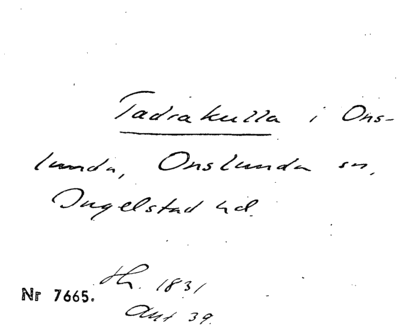 Tadrakulla i Ons-
lunda, Onslunda sn,
Ingelstad hd.
Hh. 1831
Nr 7665.
Ant 39.